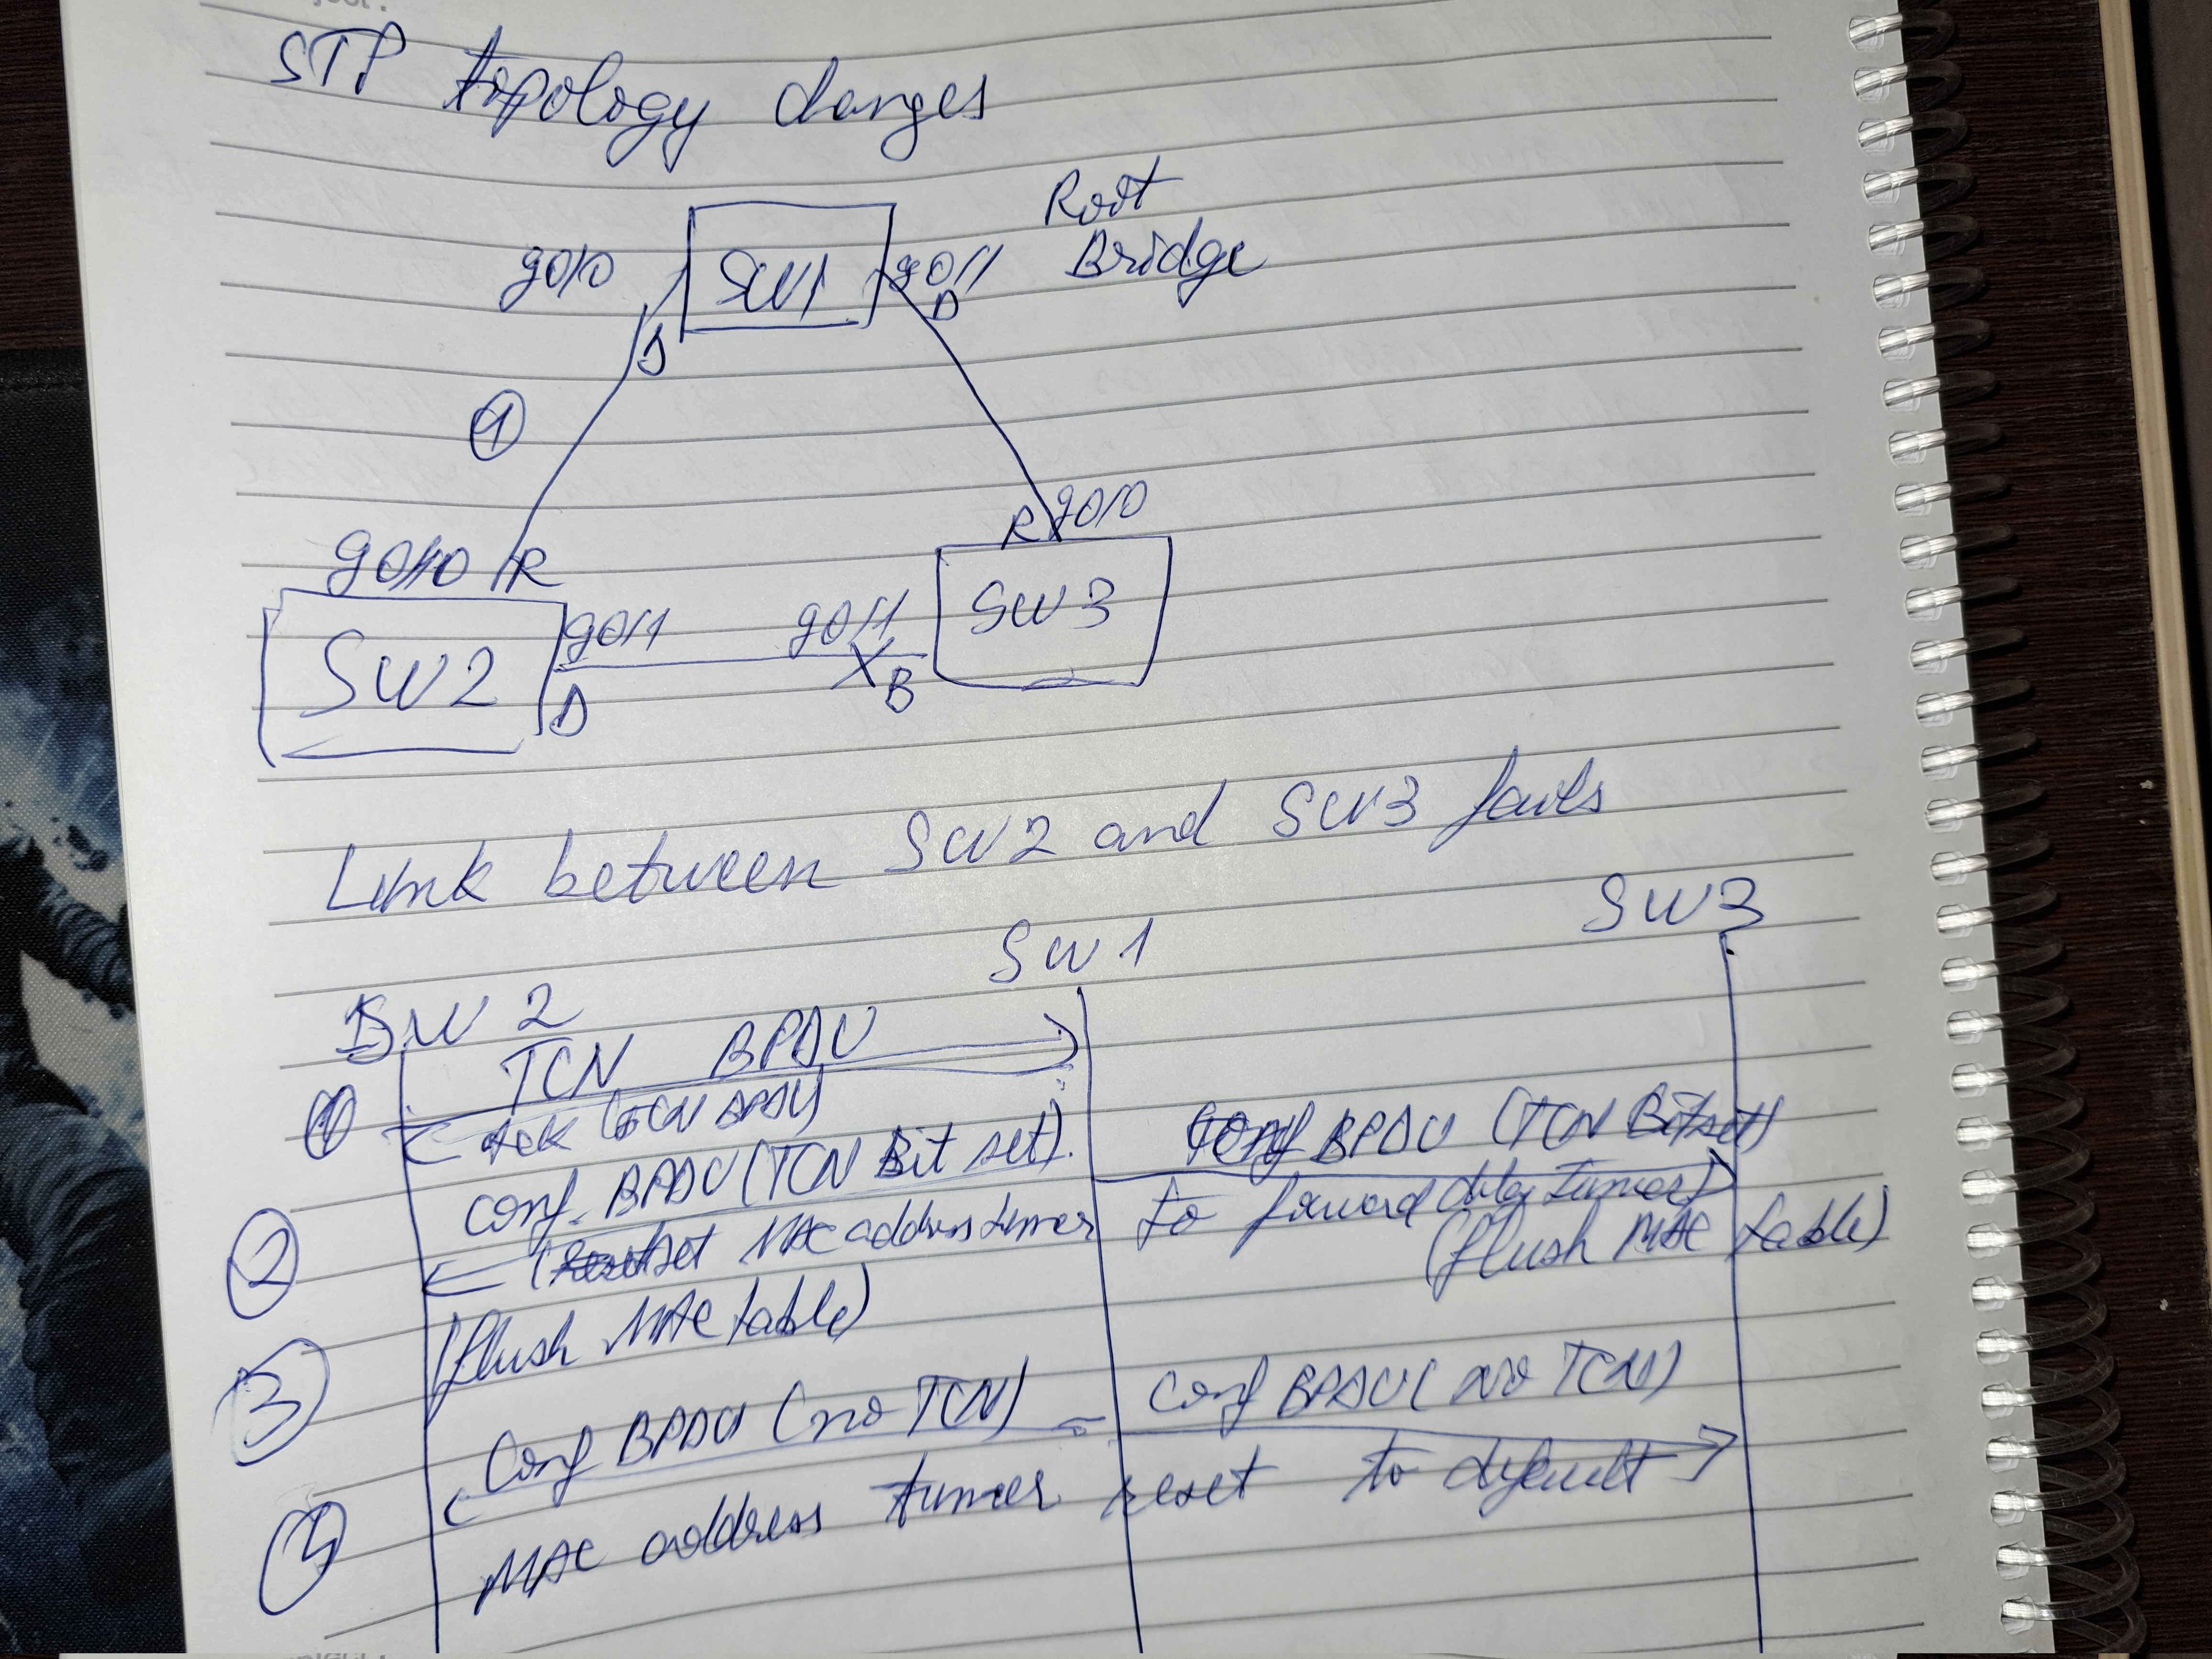 STP topology changes
Root
Bridge
g0/0 SW1 g0/1
D D
①
R g0/0
g0/0 R
SW2 g0/1 g0/1 SW3
D X B
Link between SW2 and SW3 fails
SW2 SW1 SW3
TCN BPDU
① Ack (TCN BPDU)
Conf. BPDU (TCN Bit set). Conf BPDU (TCN Bit set)
② (set MAC address timer to forward delay timer)
(flush MAC table)
③ (flush MAC table)
Conf BPDU (no TCN) Conf BPDU (no TCN)
④ MAC address timer reset to default